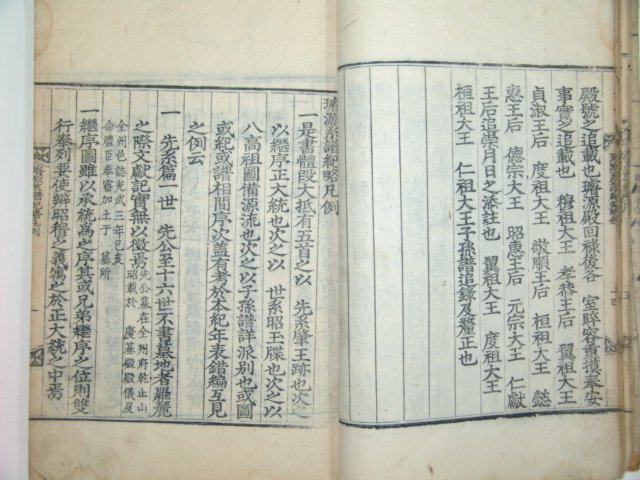 殿號之追載也璿源殿回祿後各 室睟容重摸奉安
事實之追載也 穆祖大王 孝恭王后 翼祖大王
貞淑王后 度祖大王 敬順王后 桓祖大王 懿
惠王后 德宗大王 昭惠王后 元宗大王 仁獻
王后追崇月日之添註也 翼祖大王 度祖大王
桓祖大王 仁祖大王子孫譜追錄及釐正也
璿源系譜紀略凡例
一是書體段大抵有五首之以 先系肇王跡也次之
以繼序正大統也次之以 世系昭玉牒也次之以
八高祖圖備源流也次之以子孫譜詳派別也或圖
或紀或譜相間序次盖有考於本紀年表錯編互見
之例云
一 先系篇一世 先公至十六世不書墓地者羅麗
之際文獻記實無以徵焉 先公墓在全州府乾止山昭載於 慶基殿殿儀及
全州邑誌光武三年己亥
命禮臣奉審加土于 墓所
一繼序圖雖以承統爲之序其或兄弟繼序之位則雙
行奉列要使辨昭穆之義寓之於正大統之中焉